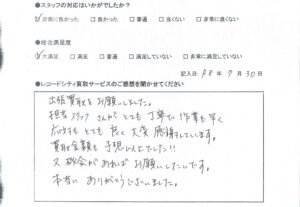 ●スタッフの対応はいかがでしたか？
☑非常に良かった □良かった □普通 □良くない □非常に良くない
●総合満足度
☑大満足 □満足 □普通 □満足していない □非常に満足していない
記入日 R8年7月30日
●レコードシティ買取サービスのご感想を聞かせてください
出張買取をお願いしました。
担当スタッフさんがとても丁寧で作業も早く
応対もとても良く大変感謝しています。
買取金額も予想以上でした!!
又機会があればお願いしたいです。
本当にありがとうございました。